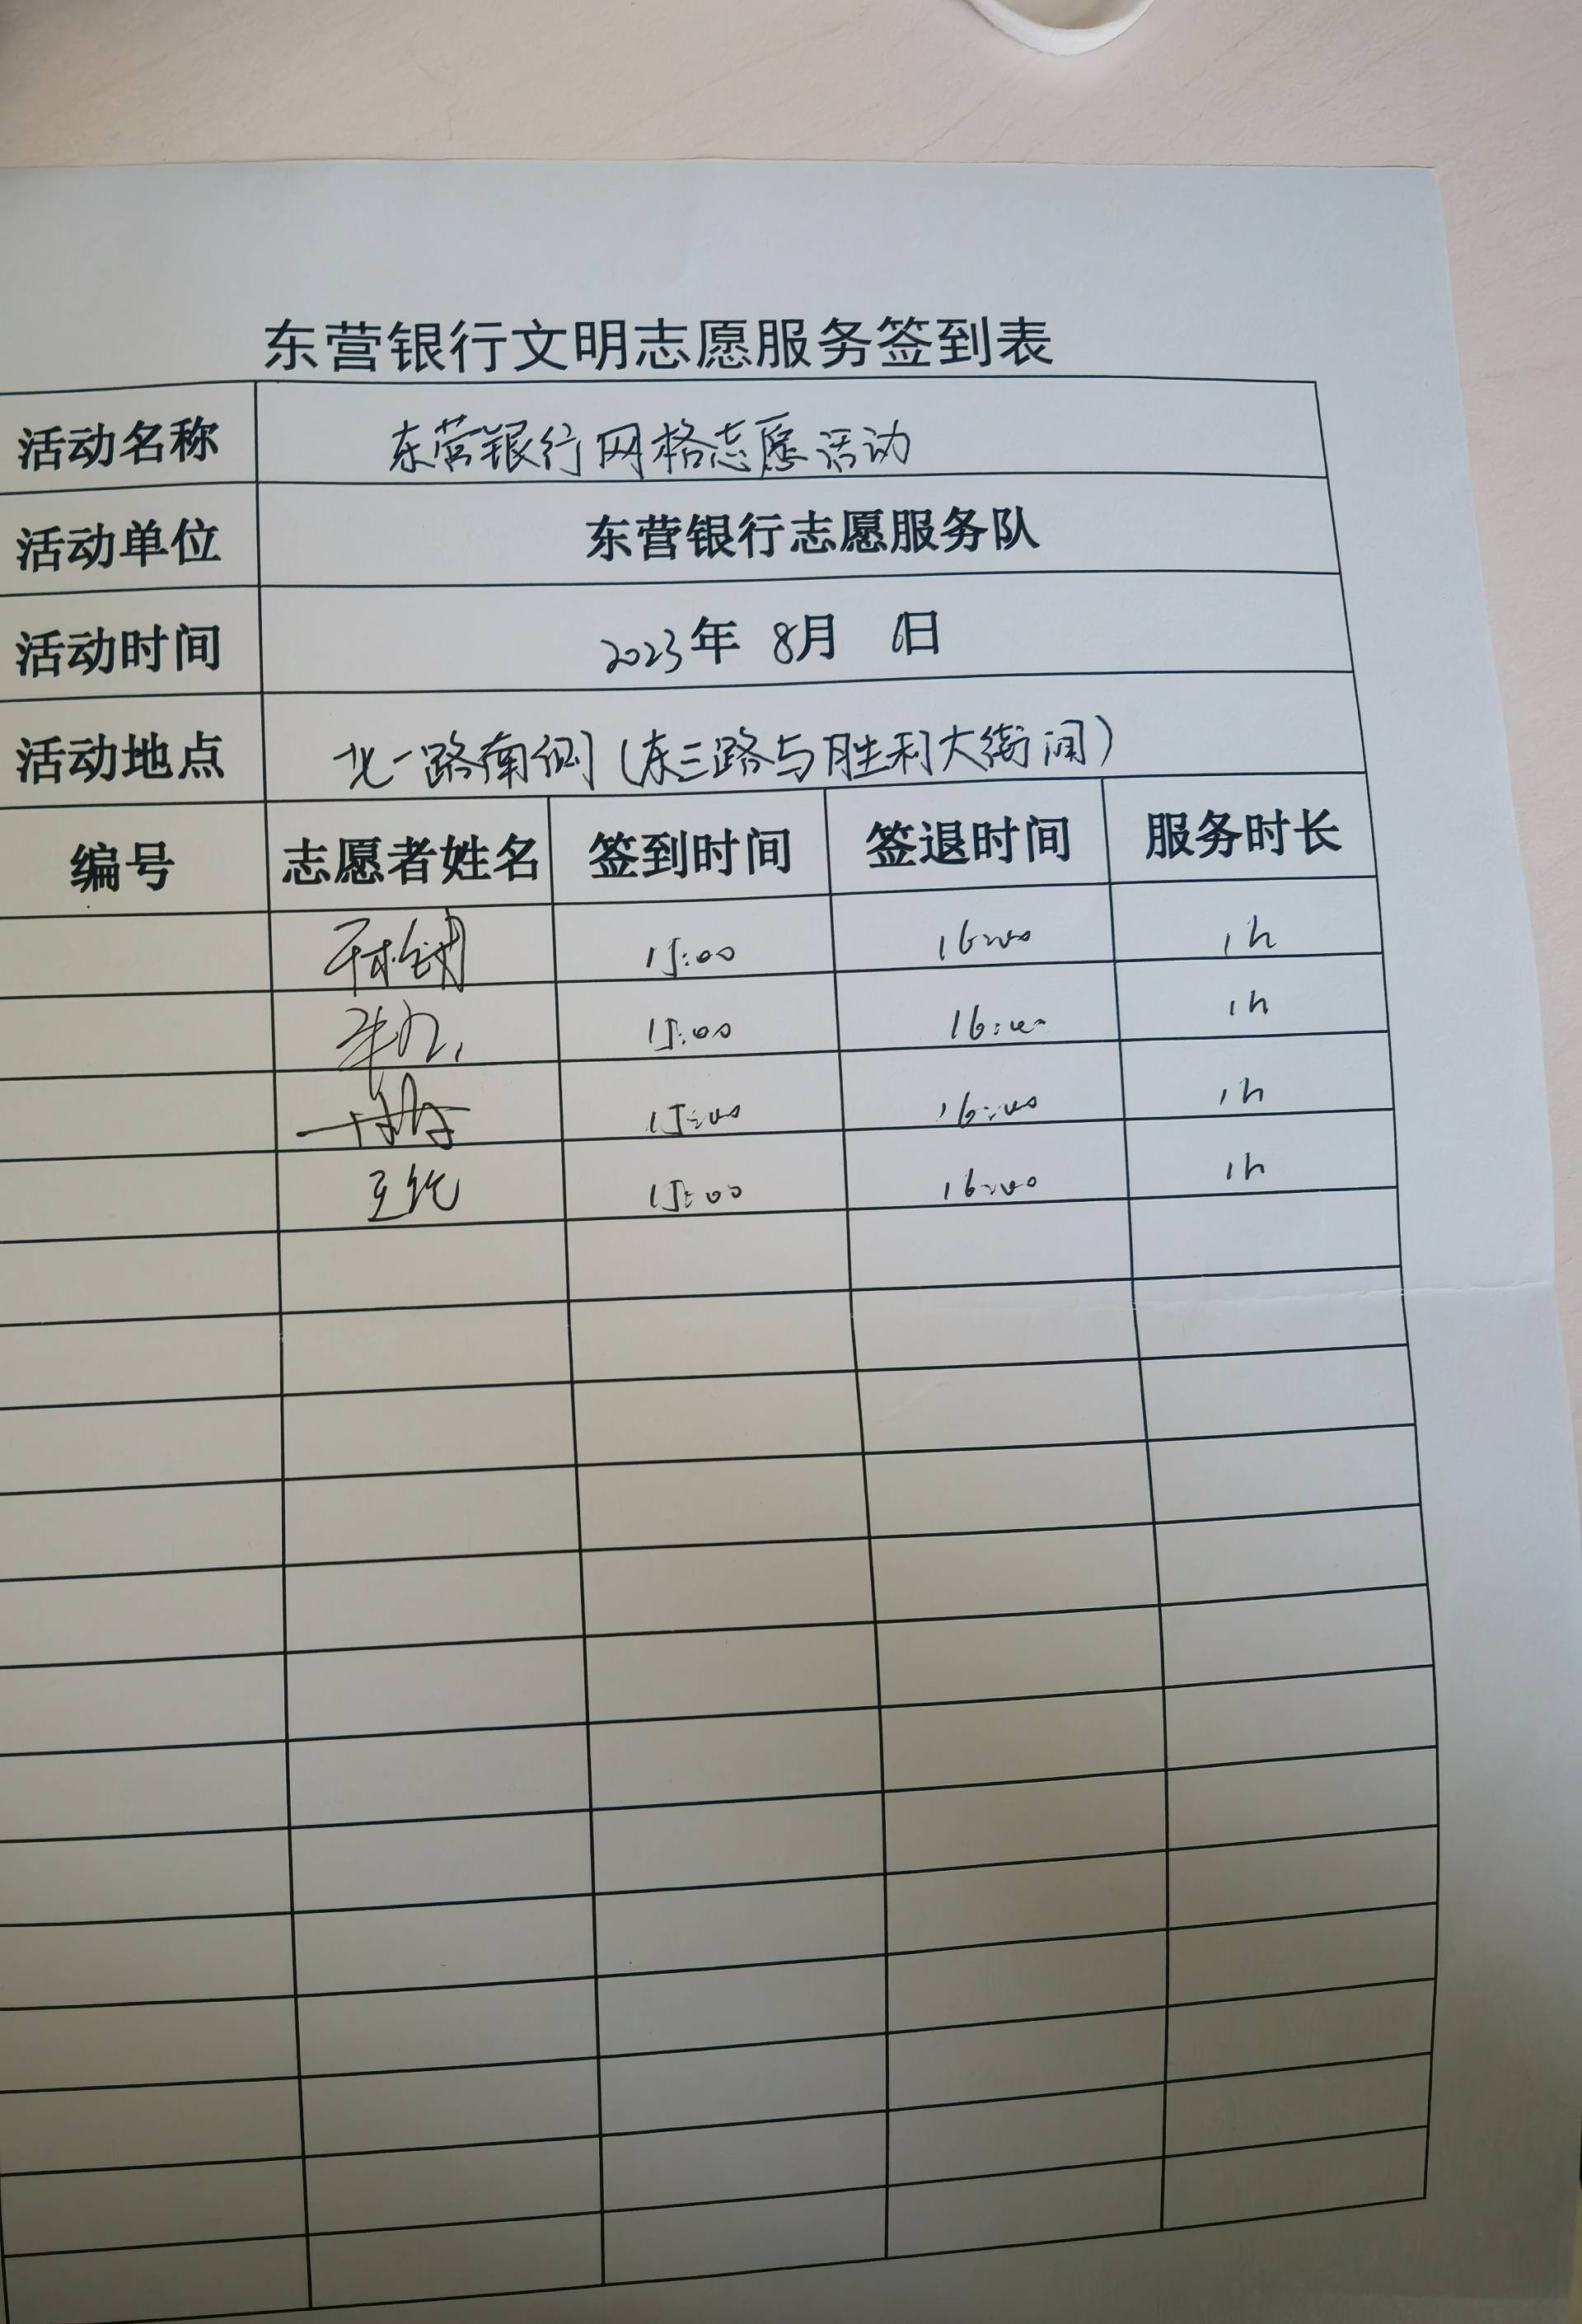 东营银行文明志愿服务签到表
活动名称 东营银行网格志愿活动
活动单位 东营银行志愿服务队
活动时间 2023年 8月 6日
活动地点 北一路南侧(东三路与胜利大街间)
编号 志愿者姓名 签到时间 签退时间 服务时长
15:00 16:00 1h
15:00 16:00 1h
15:00 16:00 1h
15:00 16:00 1h